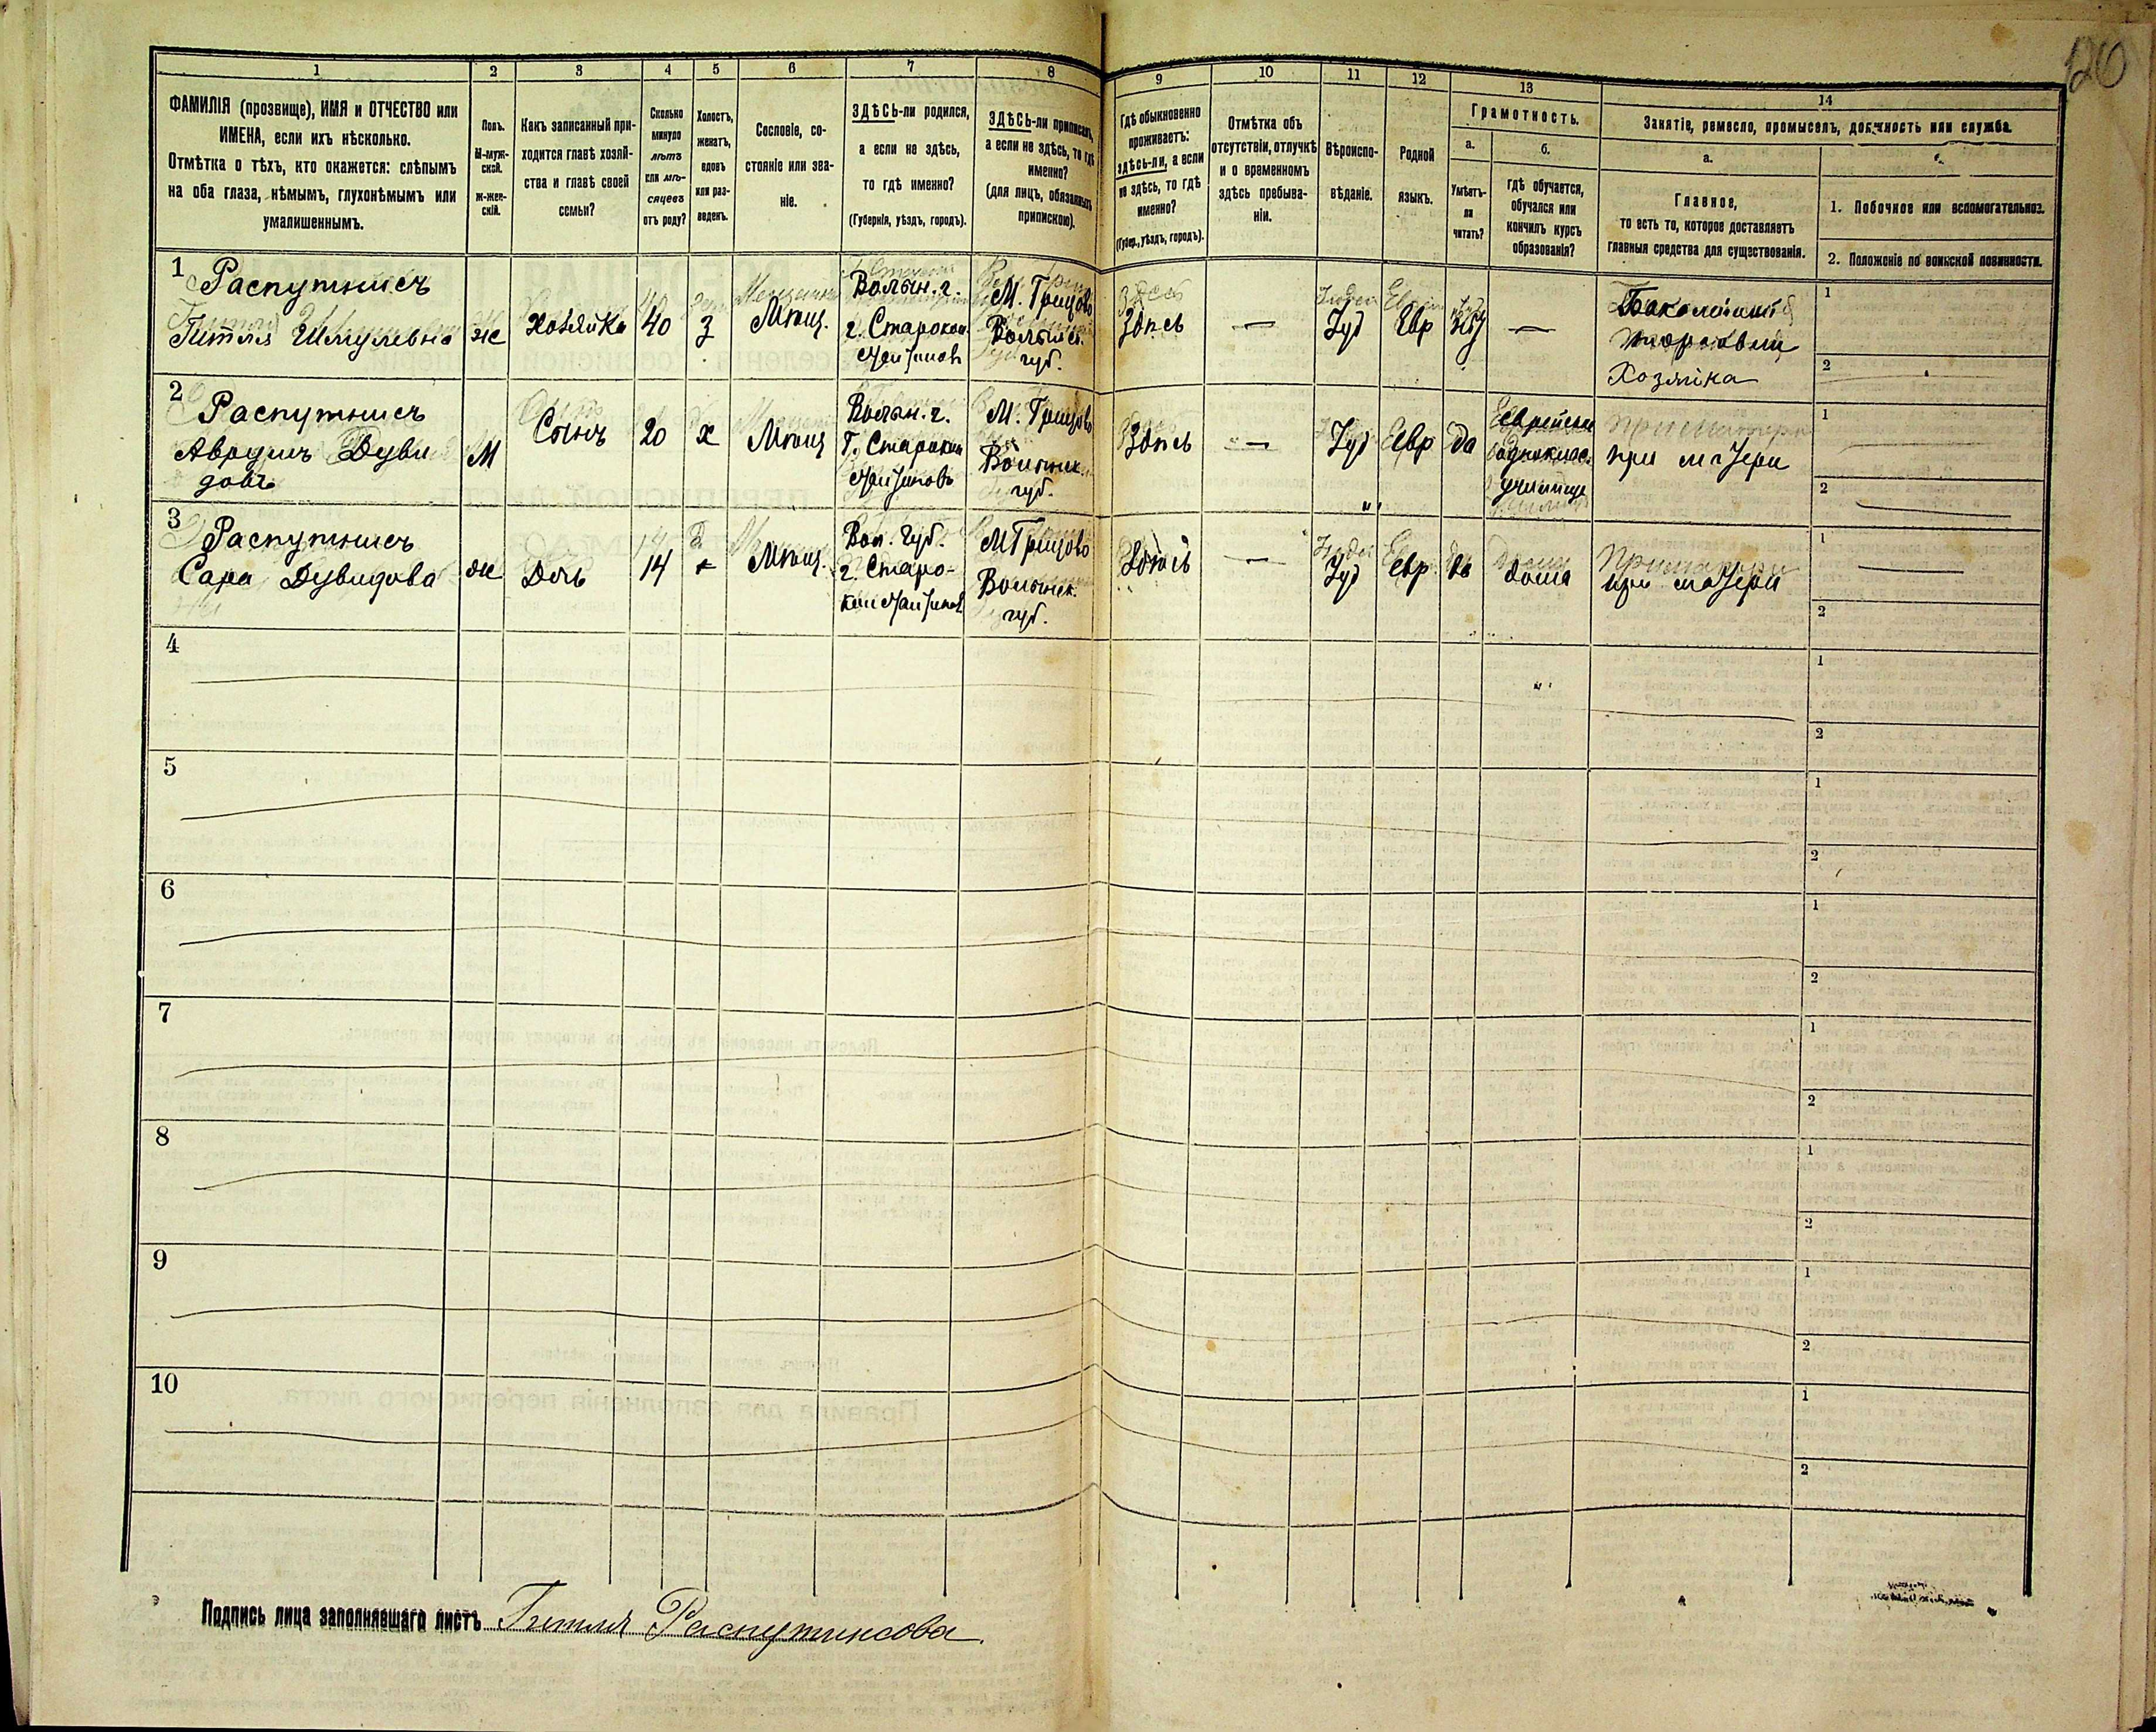 120
1
2
3
4
5
6
7
8
9
10
11
12
13
14
ФАМИЛІЯ (прозвище), ИМЯ и ОТЧЕСТВО или
ИМЕНА, если ихъ нѣсколько.
Отмѣтка о тѣхъ, кто окажется: слѣпымъ
на оба глаза, нѣмымъ, глухонѣмымъ или
умалишеннымъ.
Полъ.
М-муж-
ской.
Ж-жен-
скій.
Какъ записанный при-
ходится главѣ хозяй-
ства и главѣ своей
семьи?
Сколько
минуло
лѣтъ
или мѣ-
сяцевъ
отъ роду?
Холостъ,
женатъ,
вдовъ
или раз-
веденъ.
Сословіе, со-
стояніе или зва-
ніе.
ЗДѢСЬ-ли родился,
а если не здѣсь,
то гдѣ именно?
(Губернія, уѣздъ, городъ).
ЗДѢСЬ-ли приписанъ,
а если не здѣсь, то гдѣ
именно?
(для лицъ, обязанныхъ
припискою).
Гдѣ обыкновенно
проживаетъ:
здѣсь-ли, а если
не здѣсь, то гдѣ
именно?
(Губер., уѣздъ, городъ).
Отмѣтка объ
отсутствіи, отлучкѣ
и о временномъ
здѣсь пребыва-
ніи.
Вѣроиспо-
вѣданіе.
Родной
языкъ.
Грамотность.
а.
Умѣетъ-
ли
читать?
б.
гдѣ обучается,
обучался или
кончилъ курсъ
образованія?
Занятіе, ремесло, промыселъ, должность или служба.
а.
Главное,
то есть то, которое доставляетъ
главныя средства для существованія.
1. Побочное или вспомогательное.
2. Положеніе по воинской повинности.
1
Распутнисъ
Гитля Шмулевна
ж
хозяйка
40
з
Мѣщ.
Волын. г.
г. Старокон
стантиновъ
М. Грицово
Волынс.
губ.
Здѣсь
—
Іуд
Евр
—
Бакалейной
торговли
Хозяйка
1
2
2
Распутнисъ
Аврумъ Дуви
довъ
М
Сынъ
20
х
Мѣщ
Волын. г.
г. Старокон
стантиновъ
М. Грицово
Волынск.
губ.
Здѣсь
—
Іуд
Евр
да
Еврейское
однокласс.
училище
при матери
1
2
3
Распутнисъ
Сара Дувидова
ж
Дочь
14
Мѣщ.
Вол. губ.
г. Старо-
константинов
М Грицово
Волынск.
губ.
Здѣсь
—
Іуд
Евр
да
дома
при матери
1
2
4
1
2
5
1
2
6
1
2
7
1
2
8
1
2
9
1
2
10
1
2
Подпись лица заполнявшаго листъ Гитля Распутнисова.